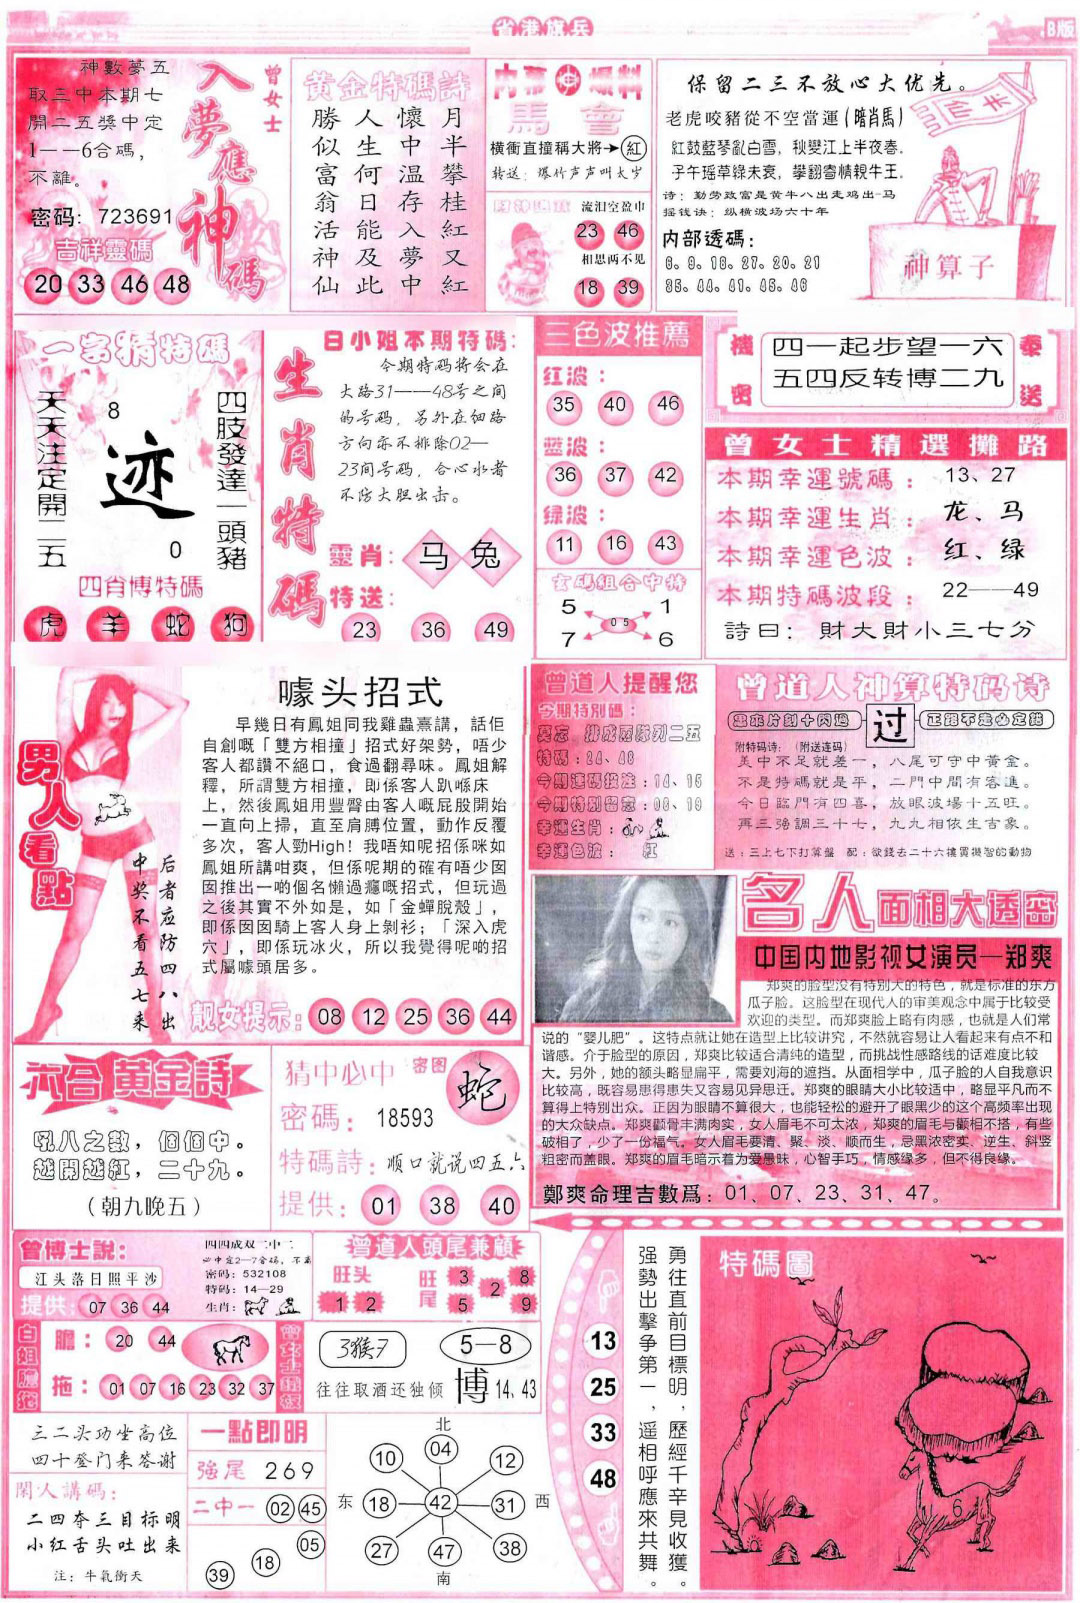 省港旗兵
B版
神數夢五
取三中本期七
開二五獎中定
1——6合碼，
不離。
密码：723691
吉祥靈碼
20 33 46 48
曾女士
入夢應神碼
黄金特碼詩
月半攀桂紅又紅
懷中温存入夢中
人生何日能及此
勝似富翁活神仙
内幕爆料
馬會
横衝直撞稱大將→紅
转送：爆竹声声叫太岁
流泪空盈巾
23 46
相思两不见
18 39
保留二三不放心大优先。
老虎咬豬從不空當運(暗肖馬)
紅鼓藍琴亂白雪，秋變江上半夜春。
子午瑶草綠未衰，攀翻寄情親牛王。
诗：勤劳致富是黄牛八出走鸡出-马
摇钱诀：纵横波场六十年
内部透碼：
神算子
一字猜特碼
天天注定開二五
8
迹
0
四肢發達一頭豬
四肖博特碼
虎 羊 蛇 狗
生肖特碼
白小姐本期特碼：
今期特码将会在
大路31——48号之间
的号码，另外在细路
方向亦不排除02—
23间号码，合心水者
不防大胆出击。
靈肖：马 兔
特送：
23 36 49
三色波推薦
红波：
35 40 46
蓝波：
36 37 42
绿波：
11 16 43
玄碼組合中特
5 1
05
7 6
四一起步望一六
五四反转博二九
曾女士精選攤路
本期幸運號碼：13、27
本期幸運生肖：龙、马
本期幸運色波：红、绿
本期特碼波段：22——49
詩曰：財大財小三七分
男人看點
中奖不看五七来
后者应防四八出
噱头招式
早幾日有鳳姐同我雞蟲熹講，話佢
自創嘅「雙方相撞」招式好架勢，唔少
客人都讚不絕口，食過翻尋味。鳳姐解
釋，所謂雙方相撞，即係客人趴喺床
上，然後鳳姐用豐臀由客人嘅屁股開始
一直向上掃，直至肩膊位置，動作反覆
多次，客人勁High！我唔知呢招係咪如
鳳姐所講咁爽，但係呢期的確有唔少囡
囡推出一啲個名懶過癮嘅招式，但玩過
之後其實不外如是，如「金蟬脫殼」，
即係囡囡騎上客人身上剝衫；「深入虎
穴」，即係玩冰火，所以我覺得呢啲招
式屬噱頭居多。
靓女提示：08 12 25 36 44
曾道人提醒您
今期特別碼：
特碼：24、48
幸運生肖：
幸運色波：紅
曾道人神算特码诗
过
附特码诗：（附送连码）
美中不足就差一，八尾可守中黄金。
不是特碼就是平，二門中間有容進。
今日臨門有四喜，放眼波場十五旺。
再三强調三十七，九九相依生吉象。
送：三上七下打算盤 配：欲錢去二十六樓買機智的動物
名人面相大透密
中国内地影视女演员—郑爽
郑爽的脸型没有特别大的特色，就是标准的东方
瓜子脸。这脸型在现代人的审美观念中属于比较受
欢迎的类型。而郑爽脸上略有肉感，也就是人们常
说的“婴儿肥”。这特点就让她在造型上比较讲究，不然就容易让人看起来有点不和
谐感。介于脸型的原因，郑爽比较适合清纯的造型，而挑战性感路线的话难度比较
大。另外，她的额头略显扁平，需要刘海的遮挡。从面相学中，瓜子脸的人自我意识
比较高，既容易患得患失又容易见异思迁。郑爽的眼睛大小比较适中，略显平凡而不
算得上特别出众。正因为眼睛不算很大，也能轻松的避开了眼黑少的这个高频率出现
的大众缺点。郑爽颧骨丰满肉实，女人眉毛不可太浓，郑爽的眉毛与颧相不搭，有些
破相了，少了一份福气。女人眉毛要清、聚、淡、顺而生，忌黑浓密实、逆生、斜竖
粗密而盖眼。郑爽的眉毛暗示着为爱愚昧，心智手巧，情感缘多，但不得良缘。
鄭爽命理吉數爲：01、07、23、31、47。
六合黄金詩
吼八之數，個個中。
越開越紅，二十九。
（朝九晚五）
猜中必中
密图
蛇
密碼：18593
特碼詩：顺口就说四五六
提供：01 38 40
曾博士說：
江头落日照平沙
提供：07 36 44
四四成双二中二
密码：532108
特码：14—29
生肖：
曾道人頭尾兼顧
旺头
1 2
旺尾
3 8
2
5 9
白姐膽拖
膽：20 44
拖：01 07 16 23 32 37
3猴7
5—8
往往取酒还独倾
博14、43
三二头功坐高位
四十登门来答谢
閑人講碼：
二四夺三目标明
小红舌头吐出来
注：牛氣衝天
一點即明
強尾 269
二中一 02 45
05
18
39
北
04
10 12
东 18 42 31 西
27 38
47
南
13
25
33
48
勇往直前目標明，歷經千辛見收獲。
强勢出擊争第一，遥相呼應來共舞。
特碼圖
6